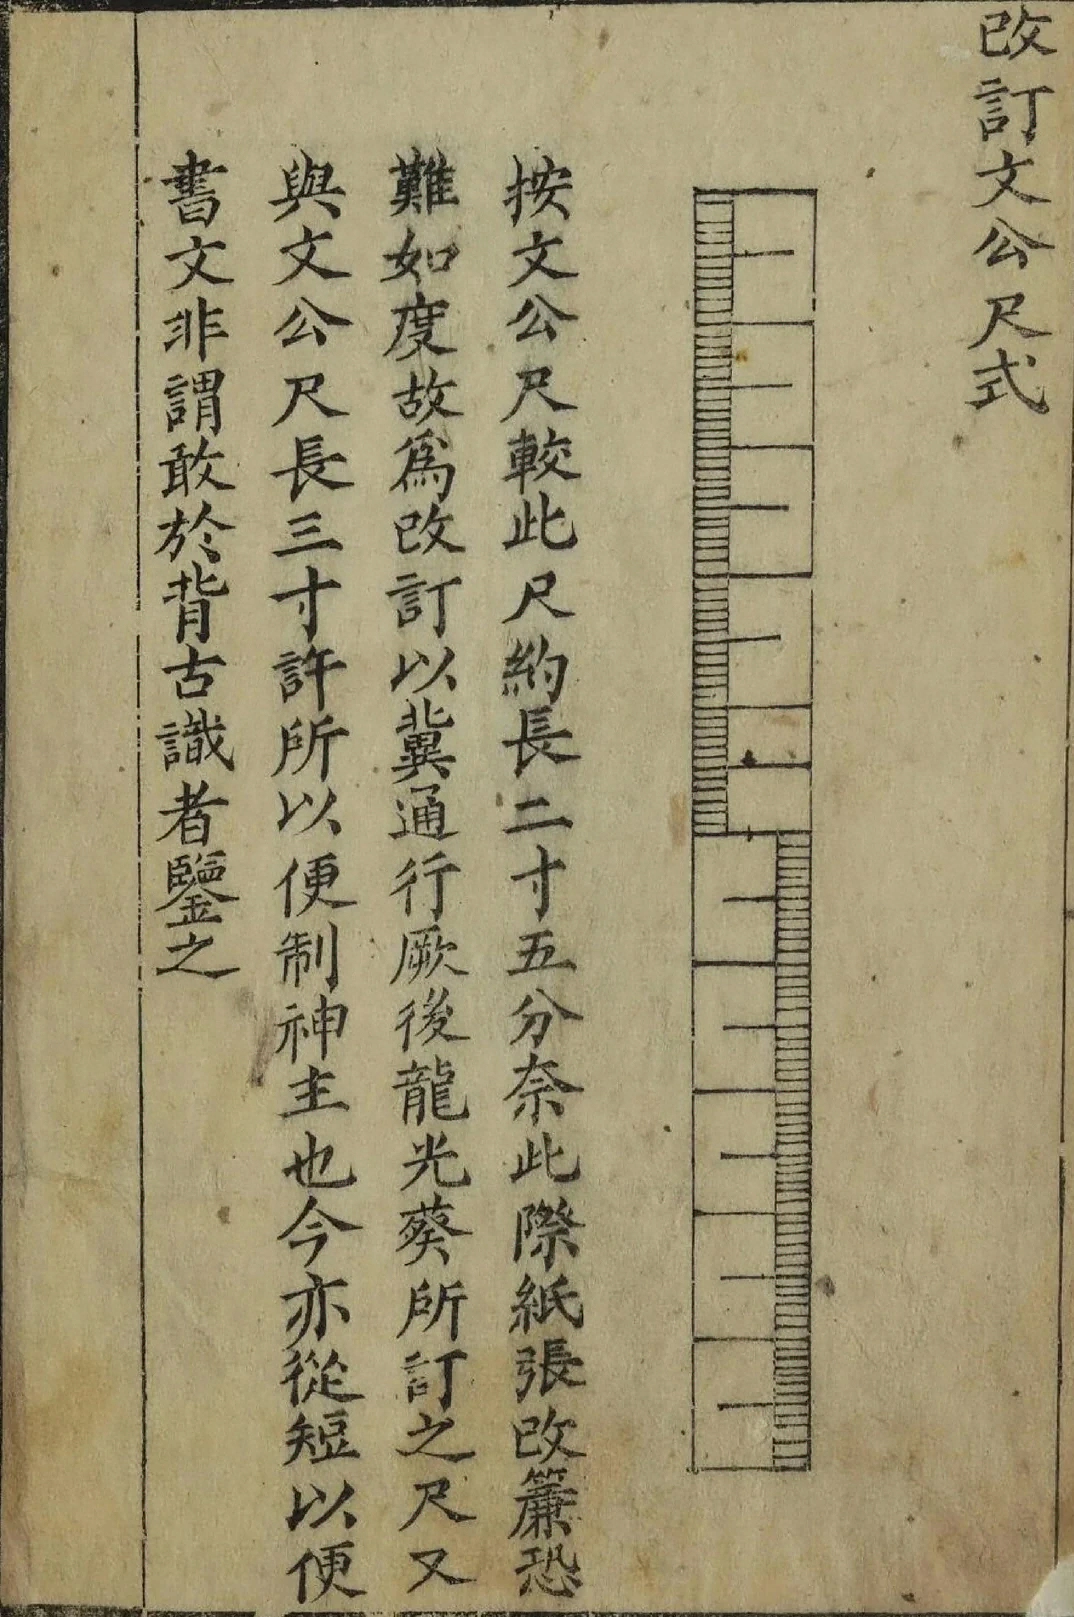 改訂文公尺式
按文公尺較此尺約長二寸五分奈此際紙張改簾恐
難如度故爲改訂以冀通行厥後龍光葵所訂之尺又
與文公尺長三寸許所以便制神主也今亦從短以便
書文非謂敢於背古識者鑒之